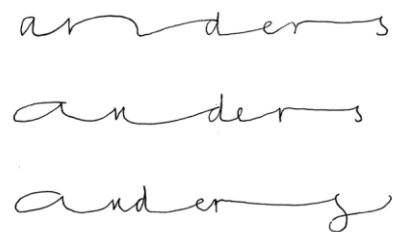 anders
anders
anders